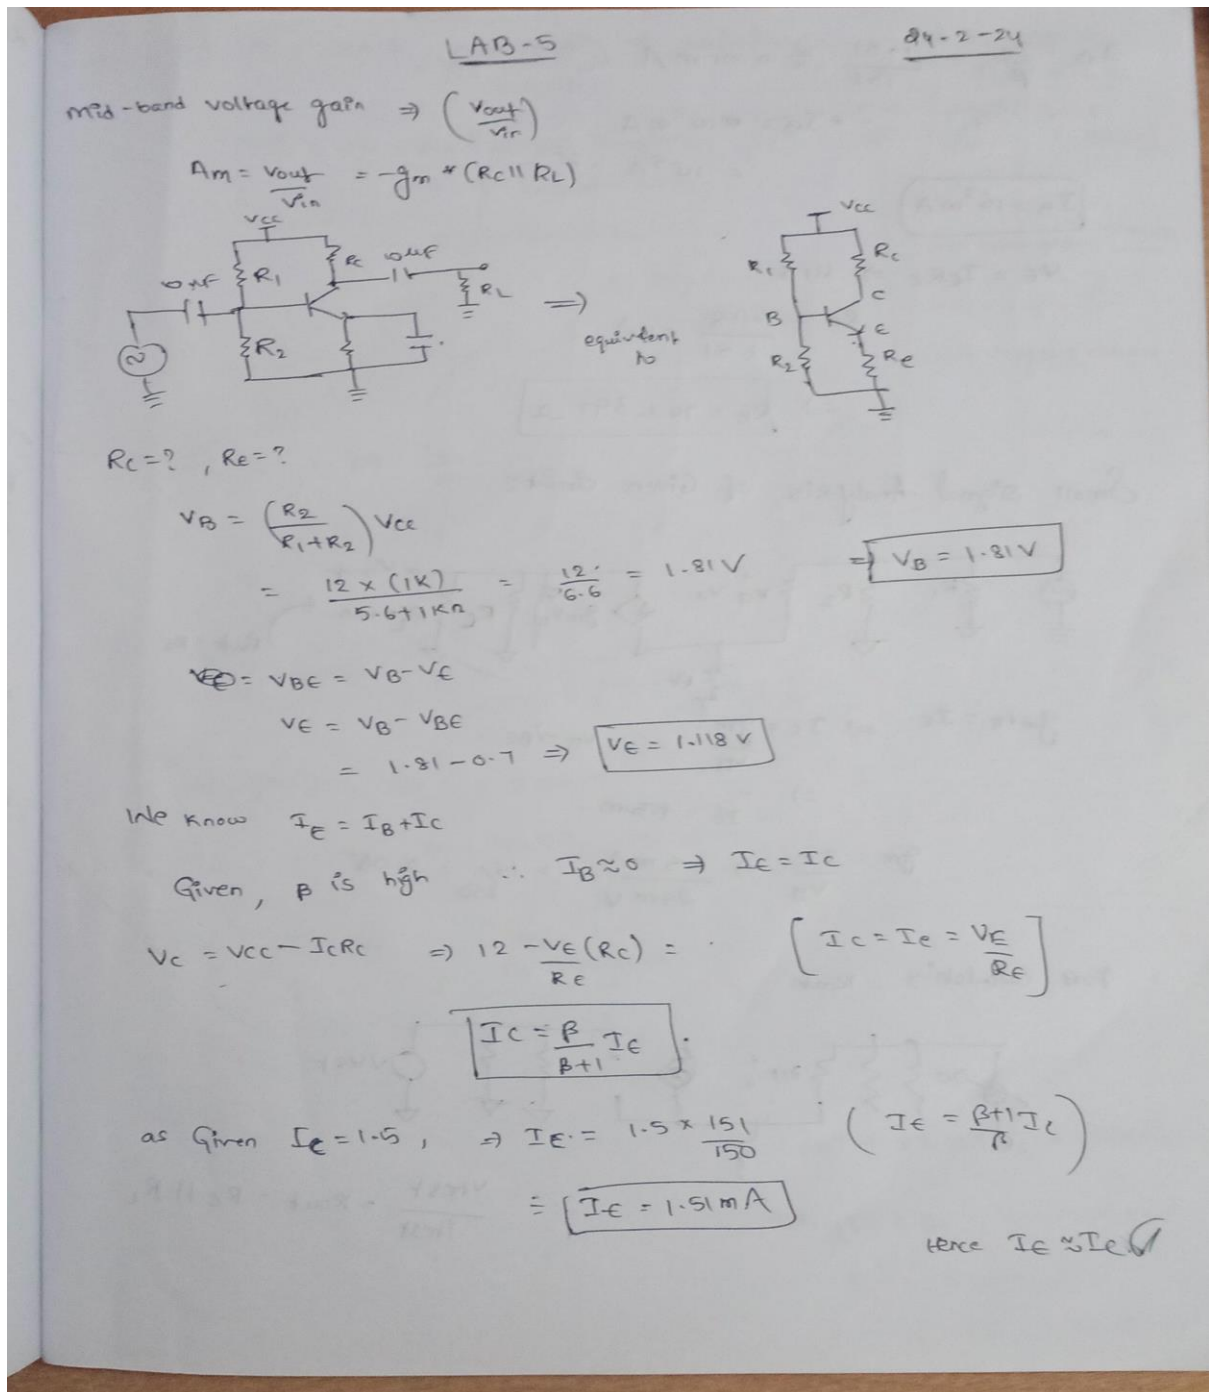 LAB-5 24-2-24
Mid-band voltage gain ⇒ (Vout/Vin)
Am = Vout/Vin = -gm * (RC || RL)
VCC
RC 10µF
10µF R1
RL
R2
⇒
equivlent
to
VCC
R1 Rc
C
B
E
R2 Re
RC = ? , RE = ?
VB = (R2/R1+R2) VCC
= 12 x (1K)/5.6+1KΩ = 12/6.6 = 1.81 V ⇒ VB = 1.81 V
= VBE = VB - VE
VE = VB - VBE
= 1.81 - 0.7 ⇒ VE = 1.118 V
We know IE = IB + IC
Given, β is high ∴ IB ≈ 0 ⇒ IE = IC
VC = VCC - ICRC ⇒ 12 - VE/RE (RC) = [IC = Ie = VE/RE]
IC = β/β+1 IE
as Given Ic = 1.5, ⇒ IE = 1.5 x 151/150 (IE = β+1/β Ic)
= IE = 1.51 mA
Hence IE ≈ Ic